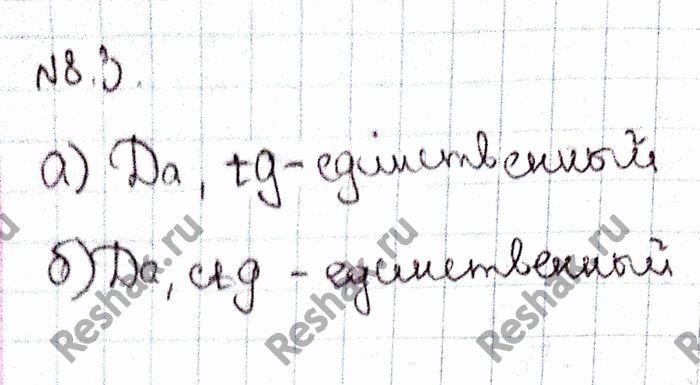 N8.3.
а) Да, tg - единственный
б) Да, ctg - единственный
Reshak.ru
Reshak.ru
Reshak.ru
Reshak.ru
Reshak.ru